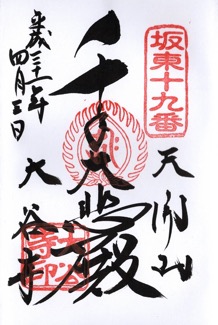 坂東十九番
天開山
千手大悲殿
大谷寺
平成三十一年
四月三日
大谷寺印